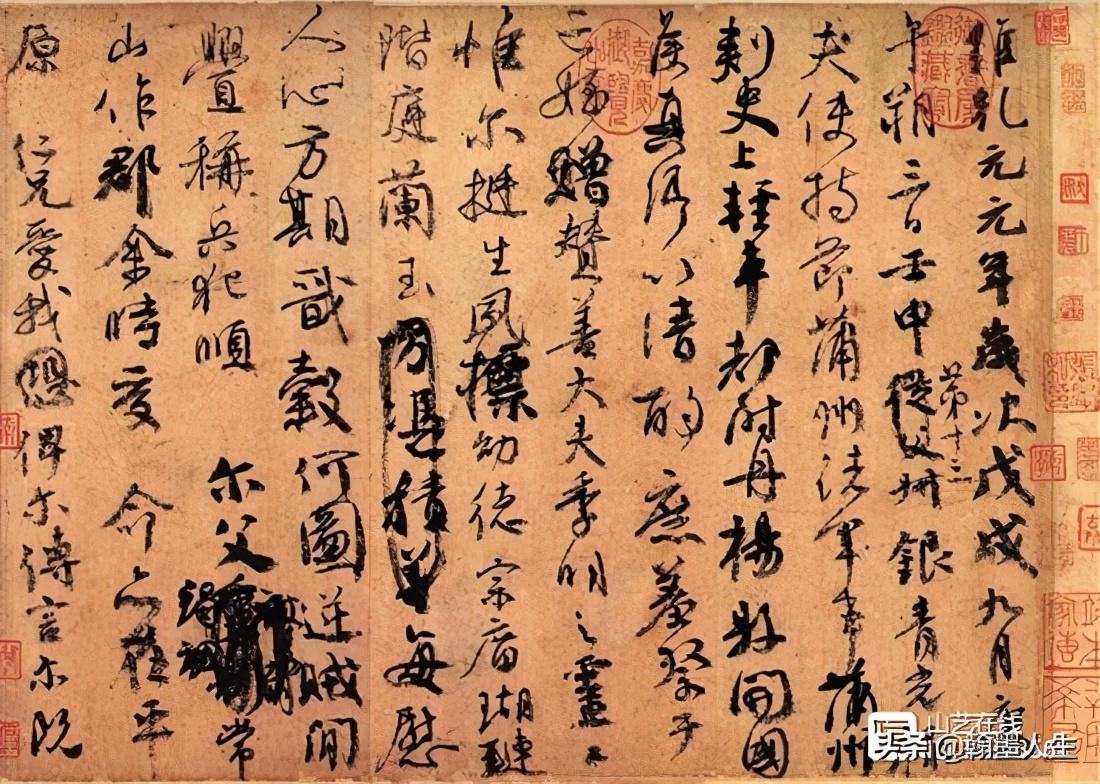 維乾元元年歲次戊戌九月庚
午朔三日壬申第十三從父銀青光
夫使持節蒲州諸軍事蒲州
刺史上輕車都尉丹楊縣開國
侯真卿以清酌庶羞祭于
亡姪贈贊善大夫季明之靈曰
惟尔挺生夙標幼德宗廟瑚璉
階庭蘭玉方憑積善每慰
人心方期戩穀何圖逆賊閒
釁稱兵犯順尔父竭誠常
山作郡余時受命亦在平
原仁兄愛我恐俾尔傳言尔既
山艺在线
头条 @翰墨人生